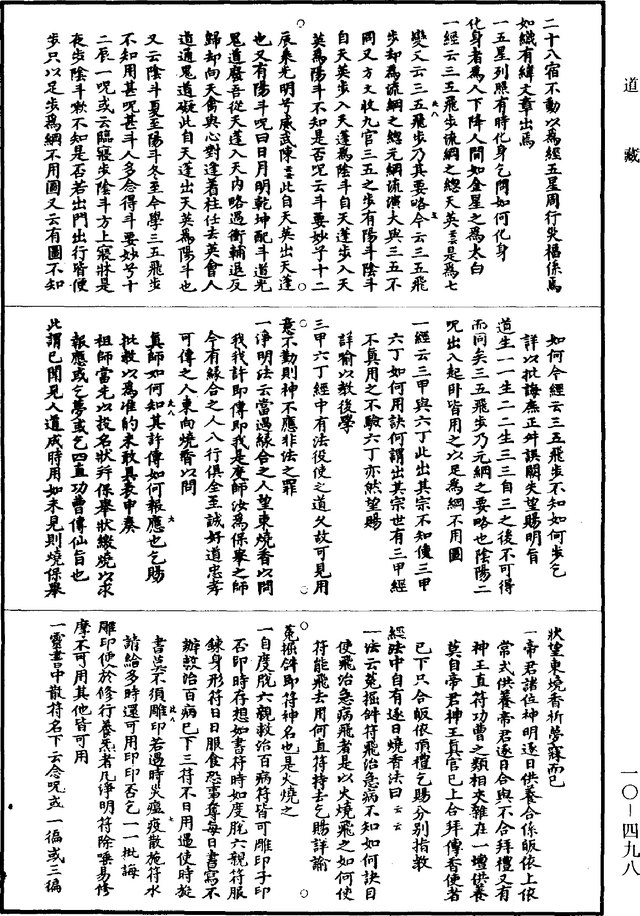 二十八宿不動以為經五星周行災福係焉
如織有緯文章出焉
一五星列照有時化身乞問如何化身
化身者為人下降人間如金星之為太白
一經云三五飛步流綱之總天英云云是為七
變文云三五飛步乃其要略今云三五飛
步却為流綱之總元綱流演大與三五不
同又方文收九宮三五之步有陽斗陰斗
自天英步入天蓬為陰斗自天蓬步入天
英為陽斗不知是否呪云斗要妙兮十二
辰乘光明兮威武陳云云此自天英出天蓬
也又有陽斗呪曰日月明乾坤配斗道光
鬼道廢吾從天蓬入天內略過衝輔退反
歸却向天禽與心對逢著柱任去英會人
道通鬼道礙此自天蓬出天英為陽斗也
又云陰斗夏至陽斗冬至今學三五飛步
不知用甚呪甚斗人多念得斗要妙兮十
二辰一呪或云臨寢步陰斗方上寢牀是
夜步陰斗歟不知是否若出門出行皆便
步只以足步為綱不用圖又云有圖不知
如何令經云三五飛步不知如何步乞
詳以批誨庶正舛誤關失望賜明旨
道生一一生二二生三三自三之後不可得
而同矣三五飛步乃元綱之要略也陰陽二
呪出入起卧皆用之以足為綱不用圖
一經云三甲與六丁此出其宗不知使三甲
六丁如何用訣何謂出其宗世有三甲經
不真用之不驗六丁亦然望賜
詳諭以教後學
三甲六丁經中有法役使之道久故可見用
意不勤則神不應非法之罪
一淨明法云當遇緣合之人望東燒香以問
我我許即傳即我是度師汝為保舉之師
今有緣合之人八行俱全至誠好道忠孝
可傳之人東向燒香以問
真師如何知其許傳如何報應也乞賜
批教以為准的未敢具表申奏
祖師當先以投名狀并保舉狀繳燒以求
報應或乞夢或乞四直功曹傳仙旨也
此謂已聞見人道成時用如未見則燒保舉
狀望東燒香祈夢寐而已
一帝君諸位神明逐日供養合係皈依上依
常式供養帝君逐日合與不合拜禮又有
神王直符功曹之類相夾雜在一壇供養
莫自帝君神王真官已上合拜傳香使者
已下只合皈依頂禮乞賜分別指教
經法中自有逐日燒香法曰云云
一法云蒐摇銔符飛治急病不知如何訣目
使飛治急病飛者是以火燒飛之如何使
符能飛去用何直符持去乞賜詳諭
蒐摇銔即符神名也是火燒之
一自度脫六親救治百病符皆可雕印子印
否印時存想如書符時如度脫六親符服
鍊身形符日日服食恐事奪每日書寫不
辦救治百病已下三符不日用遇使時旋
書莫不須雕印若遇時災瘟疫散施符水
請給多時還可用印印否乞一一批誨
雕印便於修行養炁者凡淨明符除唾易修
摩不可用其他皆可用
一靈書中散符名下云念呪或一徧或三徧
道
藏
一〇—四九八